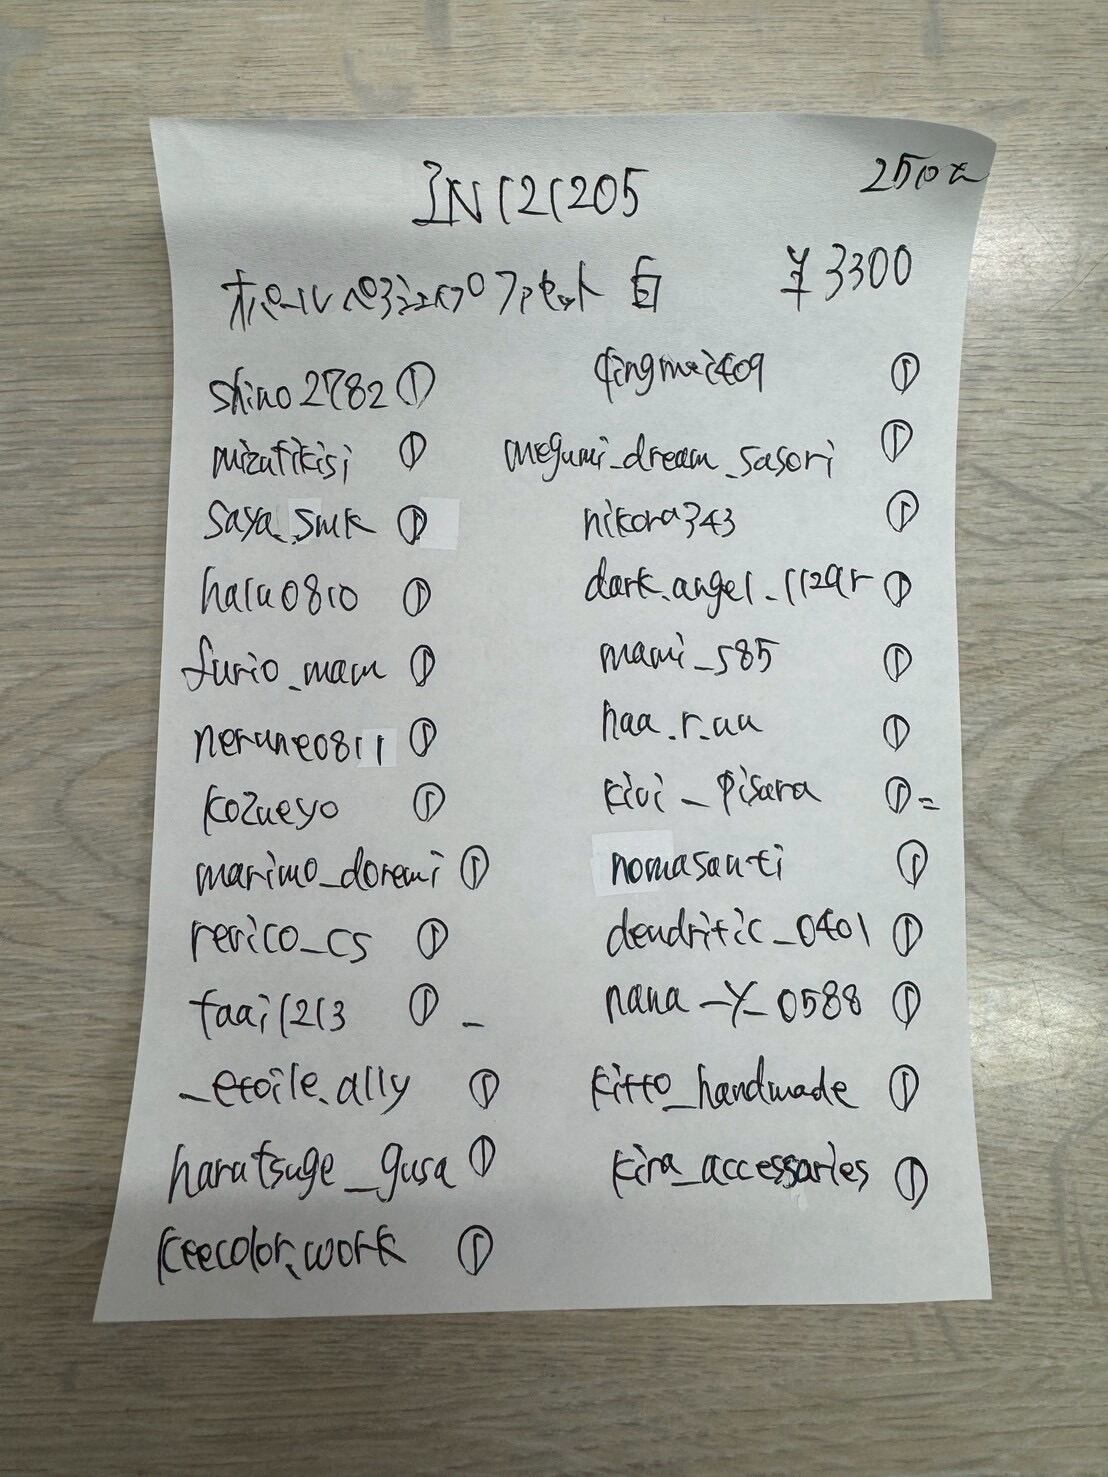 IN121205
250元
¥3300
自
shino2782 ①
mizutikisi ①
saya.smk ①
halu0810 ①
furio_mam ①
nerune0811 ①
kozueyo ①
marimo_doremi ①
revico_cs ①
faai1213 ① -
_etoile.ally ①
harutsuge_gusa ①
keecolor.work ①
qingmei409 ①
megumi_dream_sasori ①
nikora343 ①
dark.angel_1129r ①
mami_s85 ①
haa.r.uu ①
kivi_pisara ① =
nomasanti ①
dendritic_0401 ①
nana_y_0588 ①
kitto_handmade ①
kira_accessaries ①